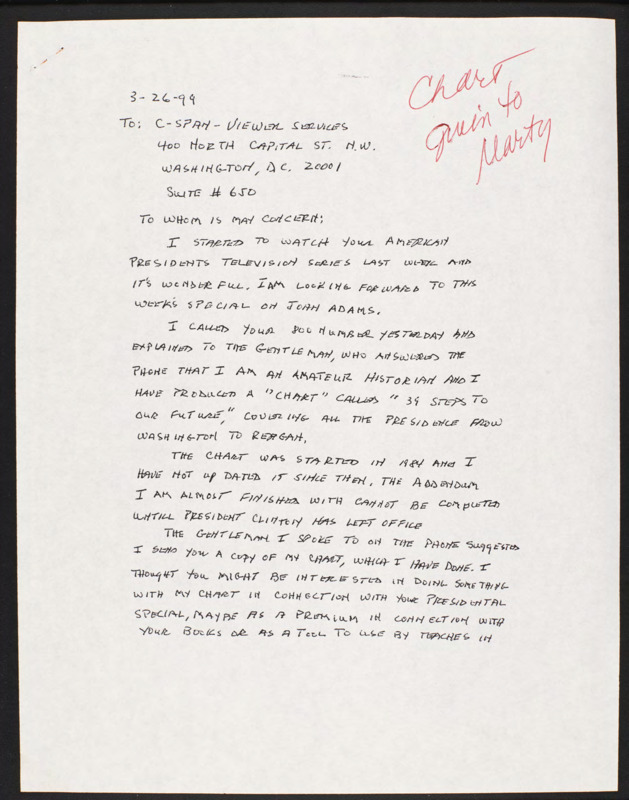 Chart
given to
Marty
3-26-99
TO: C-SPAN - VIEWER SERVICES
400 NORTH CAPITAL ST. N.W.
WASHINGTON, D.C. 20001
SUITE # 650
TO WHOM IS MAY CONCERN:
I STARTED TO WATCH YOUR AMERICAN
PRESIDENTS TELEVISION SERIES LAST WEEK AND
IT'S WONDERFUL. I AM LOOKING FORWARD TO THIS
WEEK'S SPECIAL ON JOHN ADAMS.
I CALLED YOUR 800 NUMBER YESTERDAY AND
EXPLAINED TO THE GENTLEMAN, WHO ANSWERED THE
PHONE THAT I AM AN AMATEUR HISTORIAN AND I
HAVE PRODUCED A "CHART" CALLED "39 STEPS TO
OUR FUTURE," COVERING ALL THE PRESIDENCE FROM
WASHINGTON TO REAGAN.
THE CHART WAS STARTED IN 1984 AND I
HAVE NOT UP DATED IT SINCE THEN. THE ADDENDUM
I AM ALMOST FINISHED WITH CANNOT BE COMPLETED
UNTILL PRESIDENT CLINTON HAS LEFT OFFICE
THE GENTLEMAN I SPOKE TO ON THE PHONE SUGGESTED
I SEND YOU A COPY OF MY CHART, WHICH I HAVE DONE. I
THOUGHT YOU MIGHT BE INTERESTED IN DOING SOMETHING
WITH MY CHART IN CONNECTION WITH YOUR PRESIDENTAL
SPECIAL, MAYBE AS A PREMIUM IN CONNECTION WITH
YOUR BOOKS OR AS A TOOL TO USE BY TEACHES IN